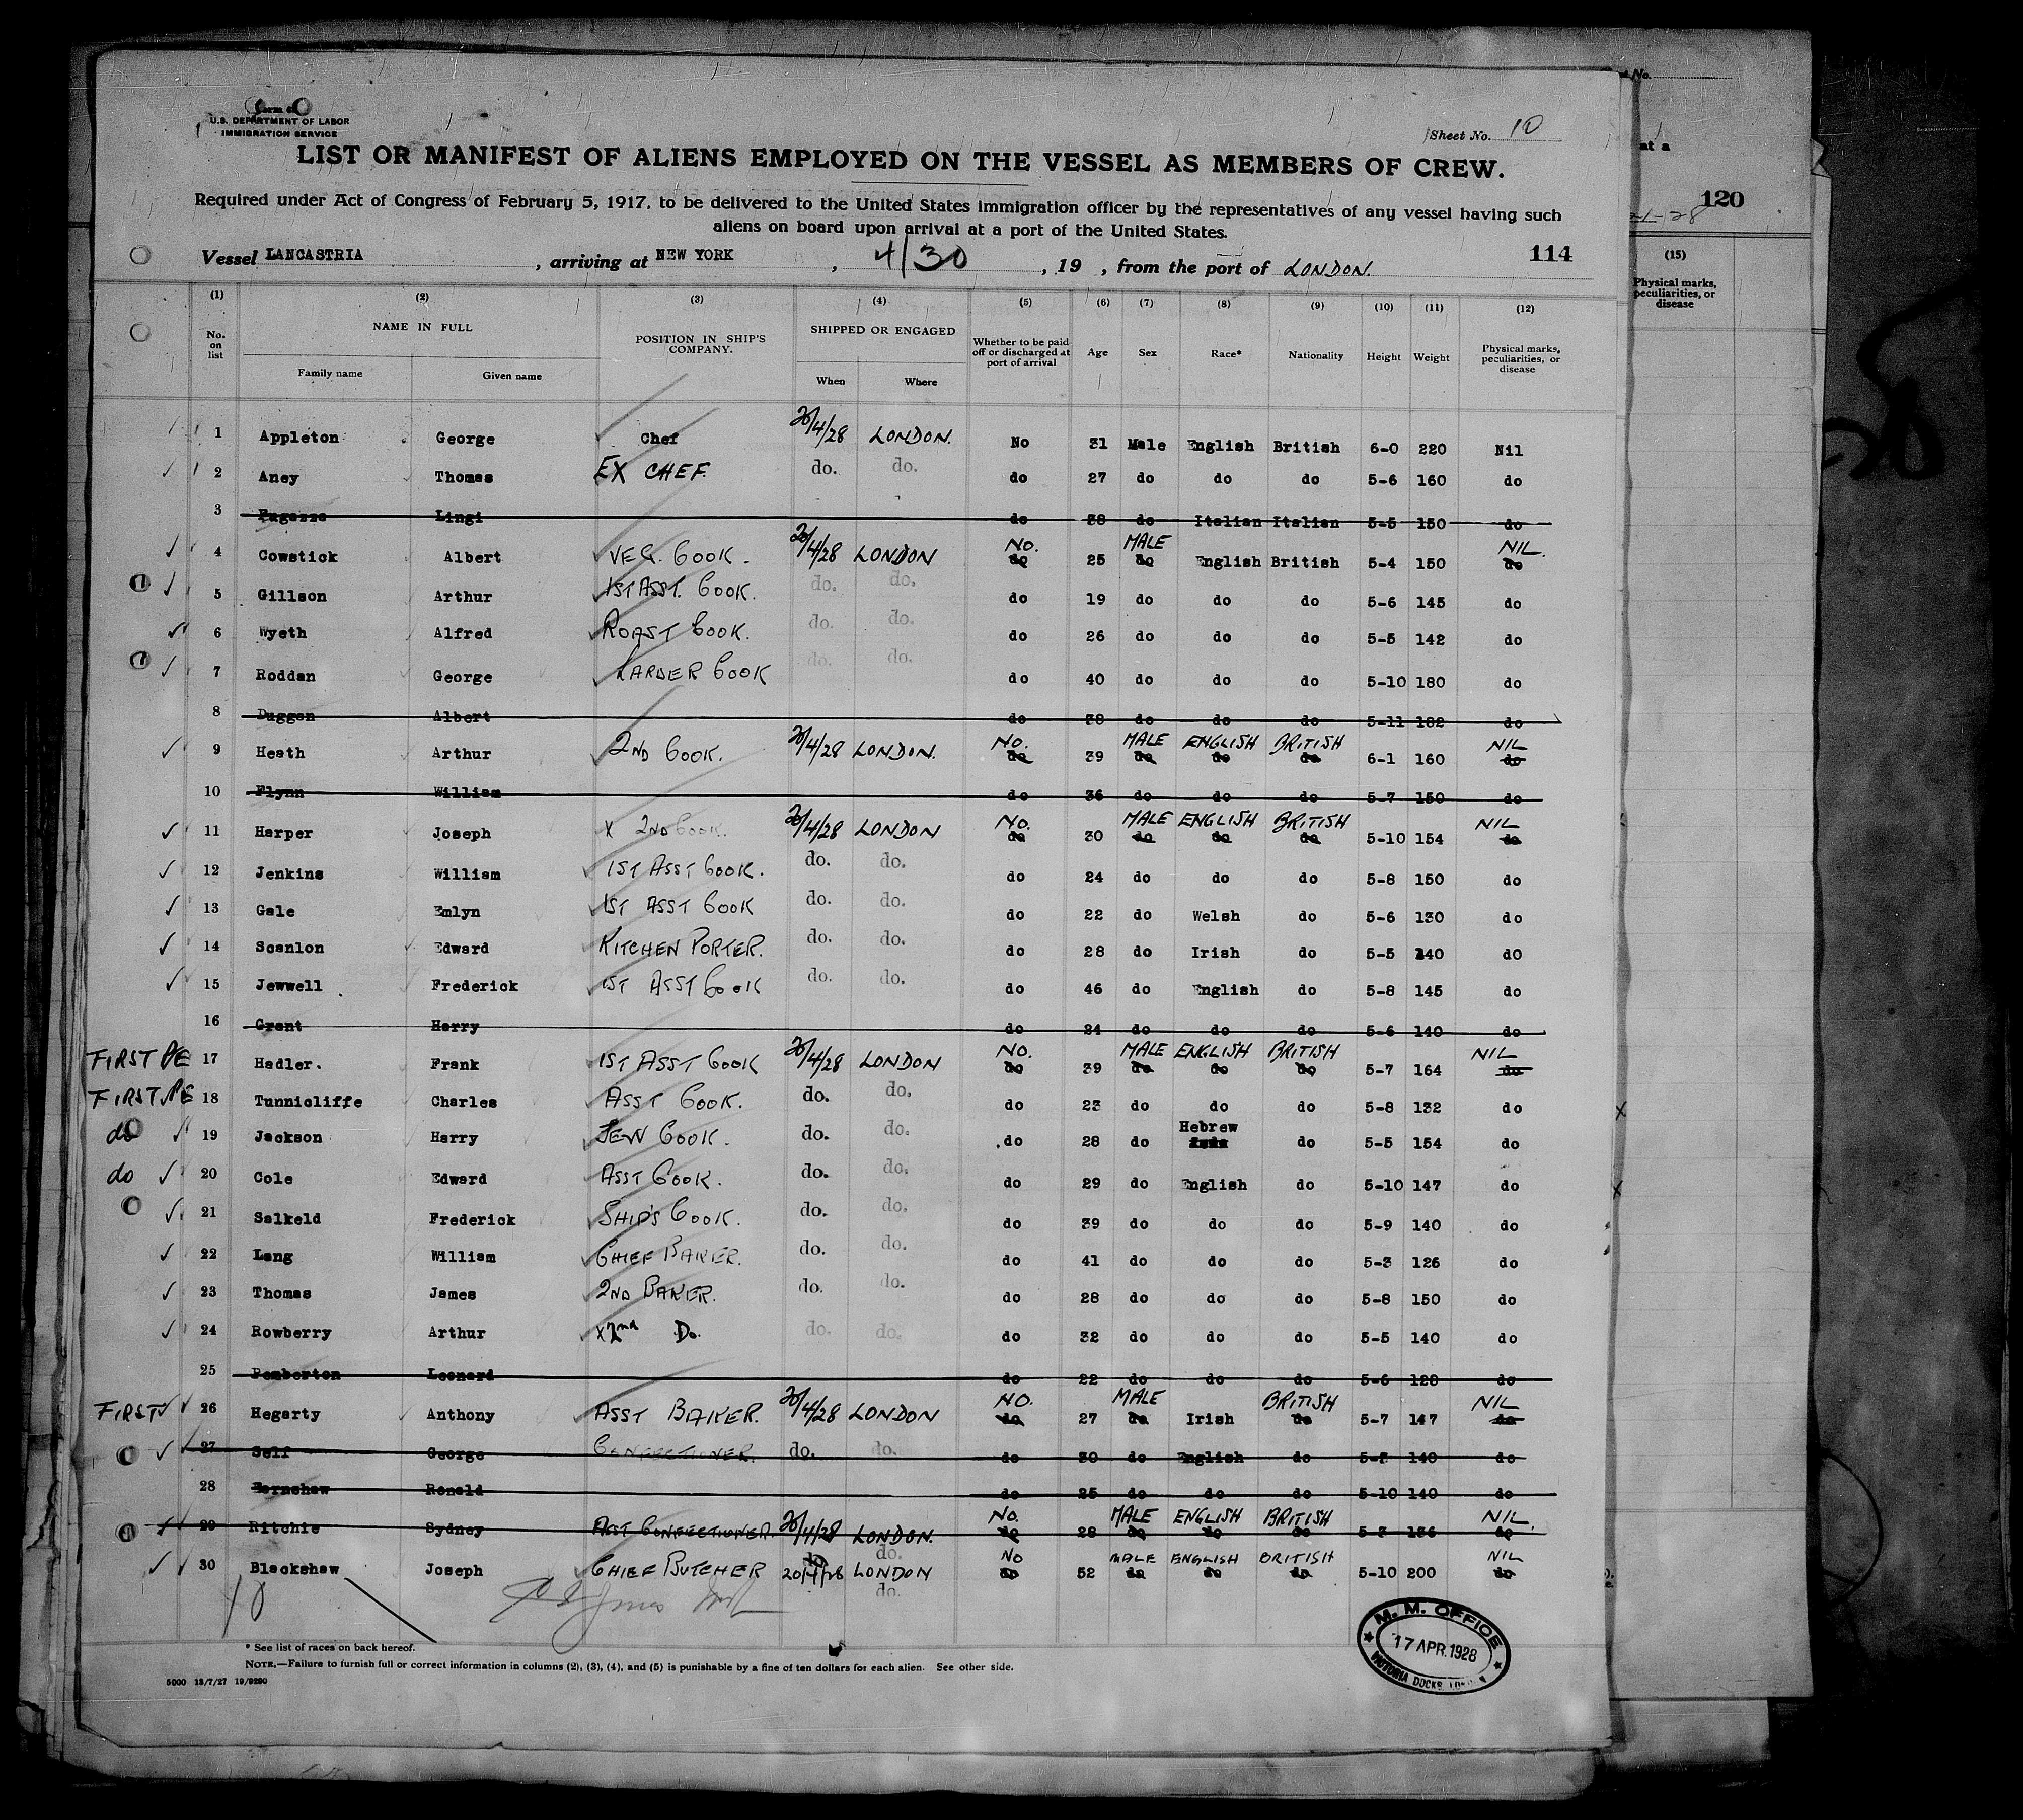 Form 680
U.S. DEPARTMENT OF LABOR
IMMIGRATION SERVICE
Sheet No. 10
LIST OR MANIFEST OF ALIENS EMPLOYED ON THE VESSEL AS MEMBERS OF CREW.
Required under Act of Congress of February 5, 1917, to be delivered to the United States immigration officer by the representatives of any vessel having such
aliens on board upon arrival at a port of the United States.
Vessel LANCASTRIA, arriving at NEW YORK, 4/30, 19 , from the port of LONDON. 114
(1) (2) (3) (4) (5) (6) (7) (8) (9) (10) (11) (12)
No. on list NAME IN FULL Family name Given name POSITION IN SHIP'S COMPANY. SHIPPED OR ENGAGED When Where Whether to be paid off or discharged at port of arrival Age Sex Race* Nationality Height Weight Physical marks, peculiarities, or disease
1 Appleton George Chef 20/4/28 LONDON. No 31 Male English British 6-0 220 Nil
2 Aney Thomas EX CHEF. do. do. do 27 do do do 5-6 160 do
3 Fugazza Lingi do 38 do Italian Italian 5-5 150 do
4 Cowstick Albert VEG. COOK. 20/4/28 LONDON NO. do 25 MALE do English British 5-4 150 NIL. do
5 Gillson Arthur 1ST ASST. COOK. do. do. do 19 do do do 5-6 145 do
6 Wyeth Alfred ROAST COOK. do. do. do 26 do do do 5-5 142 do
7 Roddan George LARDER COOK do. do. do 40 do do do 5-10 180 do
8 Duggan Albert do 38 do do do 5-11 182 do
9 Heath Arthur 2ND COOK. 20/4/28 LONDON. NO. do 39 MALE do ENGLISH do BRITISH do 6-1 160 NIL do
10 Flynn William do 36 do do do 5-7 150 do
11 Harper Joseph X 2ND COOK. 20/4/28 LONDON NO. do 30 MALE do ENGLISH do BRITISH do 5-10 154 NIL do
12 Jenkins William 1ST ASST COOK. do. do. do 24 do do do 5-8 150 do
13 Gale Emlyn 1ST ASST COOK do. do. do 22 do Welsh do 5-6 130 do
14 Scanlon Edward KITCHEN PORTER. do. do. do 28 do Irish do 5-5 140 do
15 Jewwell Frederick 1ST ASST COOK do. do. do 46 do English do 5-8 145 do
16 Grant Harry do 24 do do do 5-6 140 do
FIRST PE 17 Hadler. Frank 1ST ASST COOK 20/4/28 LONDON NO. do 39 MALE do ENGLISH do BRITISH do 5-7 164 NIL do
FIRST PE 18 Tunnicliffe Charles ASST COOK. do. do. do 23 do do do 5-8 132 do
do 19 Jackson Harry JEW COOK. do. do. do 28 do Hebrew do 5-5 154 do
do 20 Cole Edward ASST COOK. do. do. do 29 do English do 5-10 147 do
21 Salkeld Frederick SHIP'S COOK. do. do. do 39 do do do 5-9 140 do
22 Lang William CHIEF BAKER. do. do. do 41 do do do 5-3 126 do
23 Thomas James 2ND BAKER. do. do. do 28 do do do 5-8 150 do
24 Rowberry Arthur X 2nd Do. do. do. do 32 do do do 5-5 140 do
25 Pemberton Leonard do 22 do do do 5-6 128 do
FIRST 26 Hegarty Anthony ASST BAKER. 20/4/28 LONDON NO. do 27 MALE do Irish BRITISH do 5-7 147 NIL do
27 Self George CONFECTIONER. do. do. do 30 do English do 5-3 140 do
28 Earnshaw Ronald do 25 do do do 5-10 140 do
29 Ritchie Sydney ASST CONFECTIONER. 20/4/28 LONDON. NO. do 28 MALE do ENGLISH do BRITISH do 5-3 136 NIL. do
30 Blackshaw Joseph CHIEF BUTCHER do 20/4/28 do. LONDON NO do 52 MALE do ENGLISH do BRITISH do 5-10 200 NIL do
do.
* See list of races on back hereof.
NOTE.—Failure to furnish full or correct information in columns (2), (3), (4), and (5) is punishable by a fine of ten dollars for each alien. See other side.
5000 13/7/27 19/9290
M. M. OFFICE
17 APR. 1928
VICTORIA DOCKS
No.
at a
120
21-28
(15)
Physical marks, peculiarities, or disease